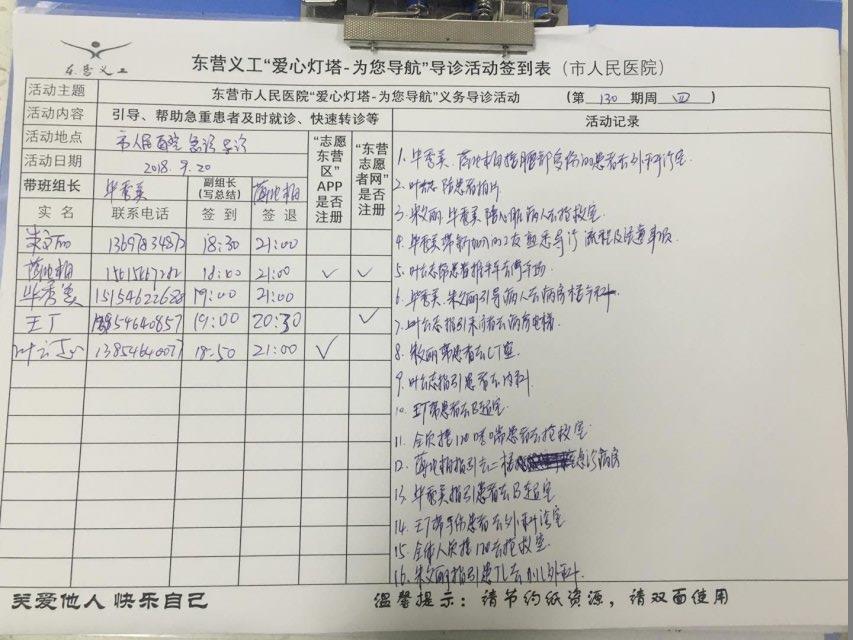 东营义工
东营义工“爱心灯塔-为您导航”导诊活动签到表（市人民医院）
活动主题 东营市人民医院“爱心灯塔-为您导航”义务导诊活动 （第 130 期周 四 ）
活动内容 引导、帮助急重患者及时就诊、快速转诊等
活动地点 市人民医院 急诊导诊
活动日期 2018.9.20
带班组长 毕秀美 副组长（写总结）
“志愿东营区”APP是否注册
“东营志愿者网”是否注册
实名 联系电话 签到 签退
18:30 21:00
21:00 ✓ ✓
毕秀美 15154622682 19:00 21:00
王丁 19:00 20:30 ✓
叶云志 18:50 21:00 ✓
活动记录
1. 毕秀美、 患者去外科诊室
2. 患者拍片
3. 宋文丽、毕秀美 病人去抢救室
4. 毕秀美带新加入的 熟悉导诊流程及注意事项
5. 叶云志 患者推平车去停车场
6. 毕秀美、宋文丽引导病人去病房楼
7. 叶云志指引 去病房电梯
8. 宋文丽带患者去CT室
9. 叶云志指引患者去内科
10. 王丁带患者去B超室
11. 全体接120 患者去抢救室
12. 指引去二楼 急诊病房
13. 毕秀美指引患者去B超室
14. 王丁带手伤患者去外科诊室
15. 全体人员接120去抢救室
16. 宋文丽指引患儿去小儿外科
关爱他人 快乐自己
温馨提示：请节约纸资源，请双面使用